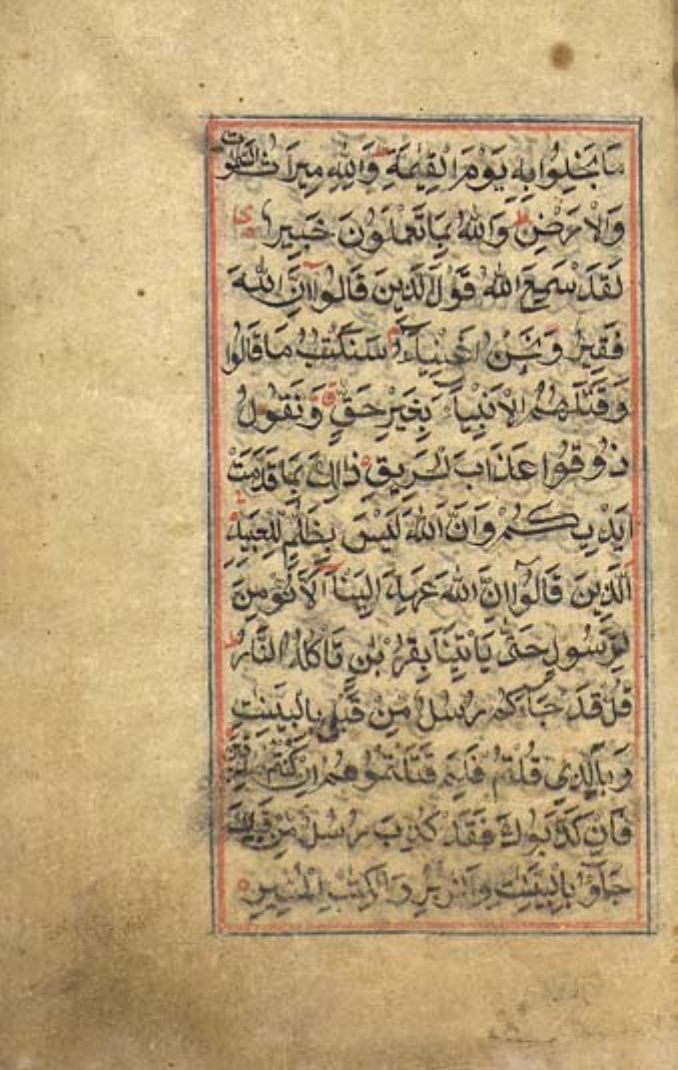 مَا بَخِلُوا بِهِ يَوْمَ الْقِيٰمَةِ ط وَلِلّٰهِ مِيرَاثُ السَّمٰوٰتِ
وَالْاَرْضِ ط وَاللّٰهُ بِمَا تَعْمَلُوْنَ خَبِيرٌ
لَقَدْ سَمِعَ اللّٰهُ قَوْلَ الَّذِينَ قَالُوْا اِنَّ اللّٰهَ
فَقِيرٌ وَنَحْنُ اَغْنِيَاءُ سَنَكْتُبُ مَا قَالُوا
وَقَتْلَهُمُ الْاَنْبِيَاءَ بِغَيْرِ حَقٍّ وَنَقُولُ
ذُوقُوا عَذَابَ الْحَرِيقِ ذٰلِكَ بِمَا قَدَّمَتْ
اَيْدِيكُمْ وَاَنَّ اللّٰهَ لَيْسَ بِظَلَّامٍ لِلْعَبِيدِ
اَلَّذِينَ قَالُوْا اِنَّ اللّٰهَ عَهِدَ اِلَيْنَا اَلَّا نُؤْمِنَ
لِرَسُولٍ حَتّٰى يَأْتِيَنَا بِقُرْبَانٍ تَأْكُلُهُ النَّارُ ط
قُلْ قَدْ جَاءَكُمْ رُسُلٌ مِنْ قَبْلِي بِالْبَيِّنٰتِ
وَبِالَّذِي قُلْتُمْ فَلِمَ قَتَلْتُمُوهُمْ اِنْ كُنْتُمْ
فَاِنْ كَذَّبُوكَ فَقَدْ كُذِّبَ رُسُلٌ مِنْ قَبْلِكَ
جَاؤُا بِالْبَيِّنٰتِ وَالزُّبُرِ وَالْكِتٰبِ الْمُنِيرِ